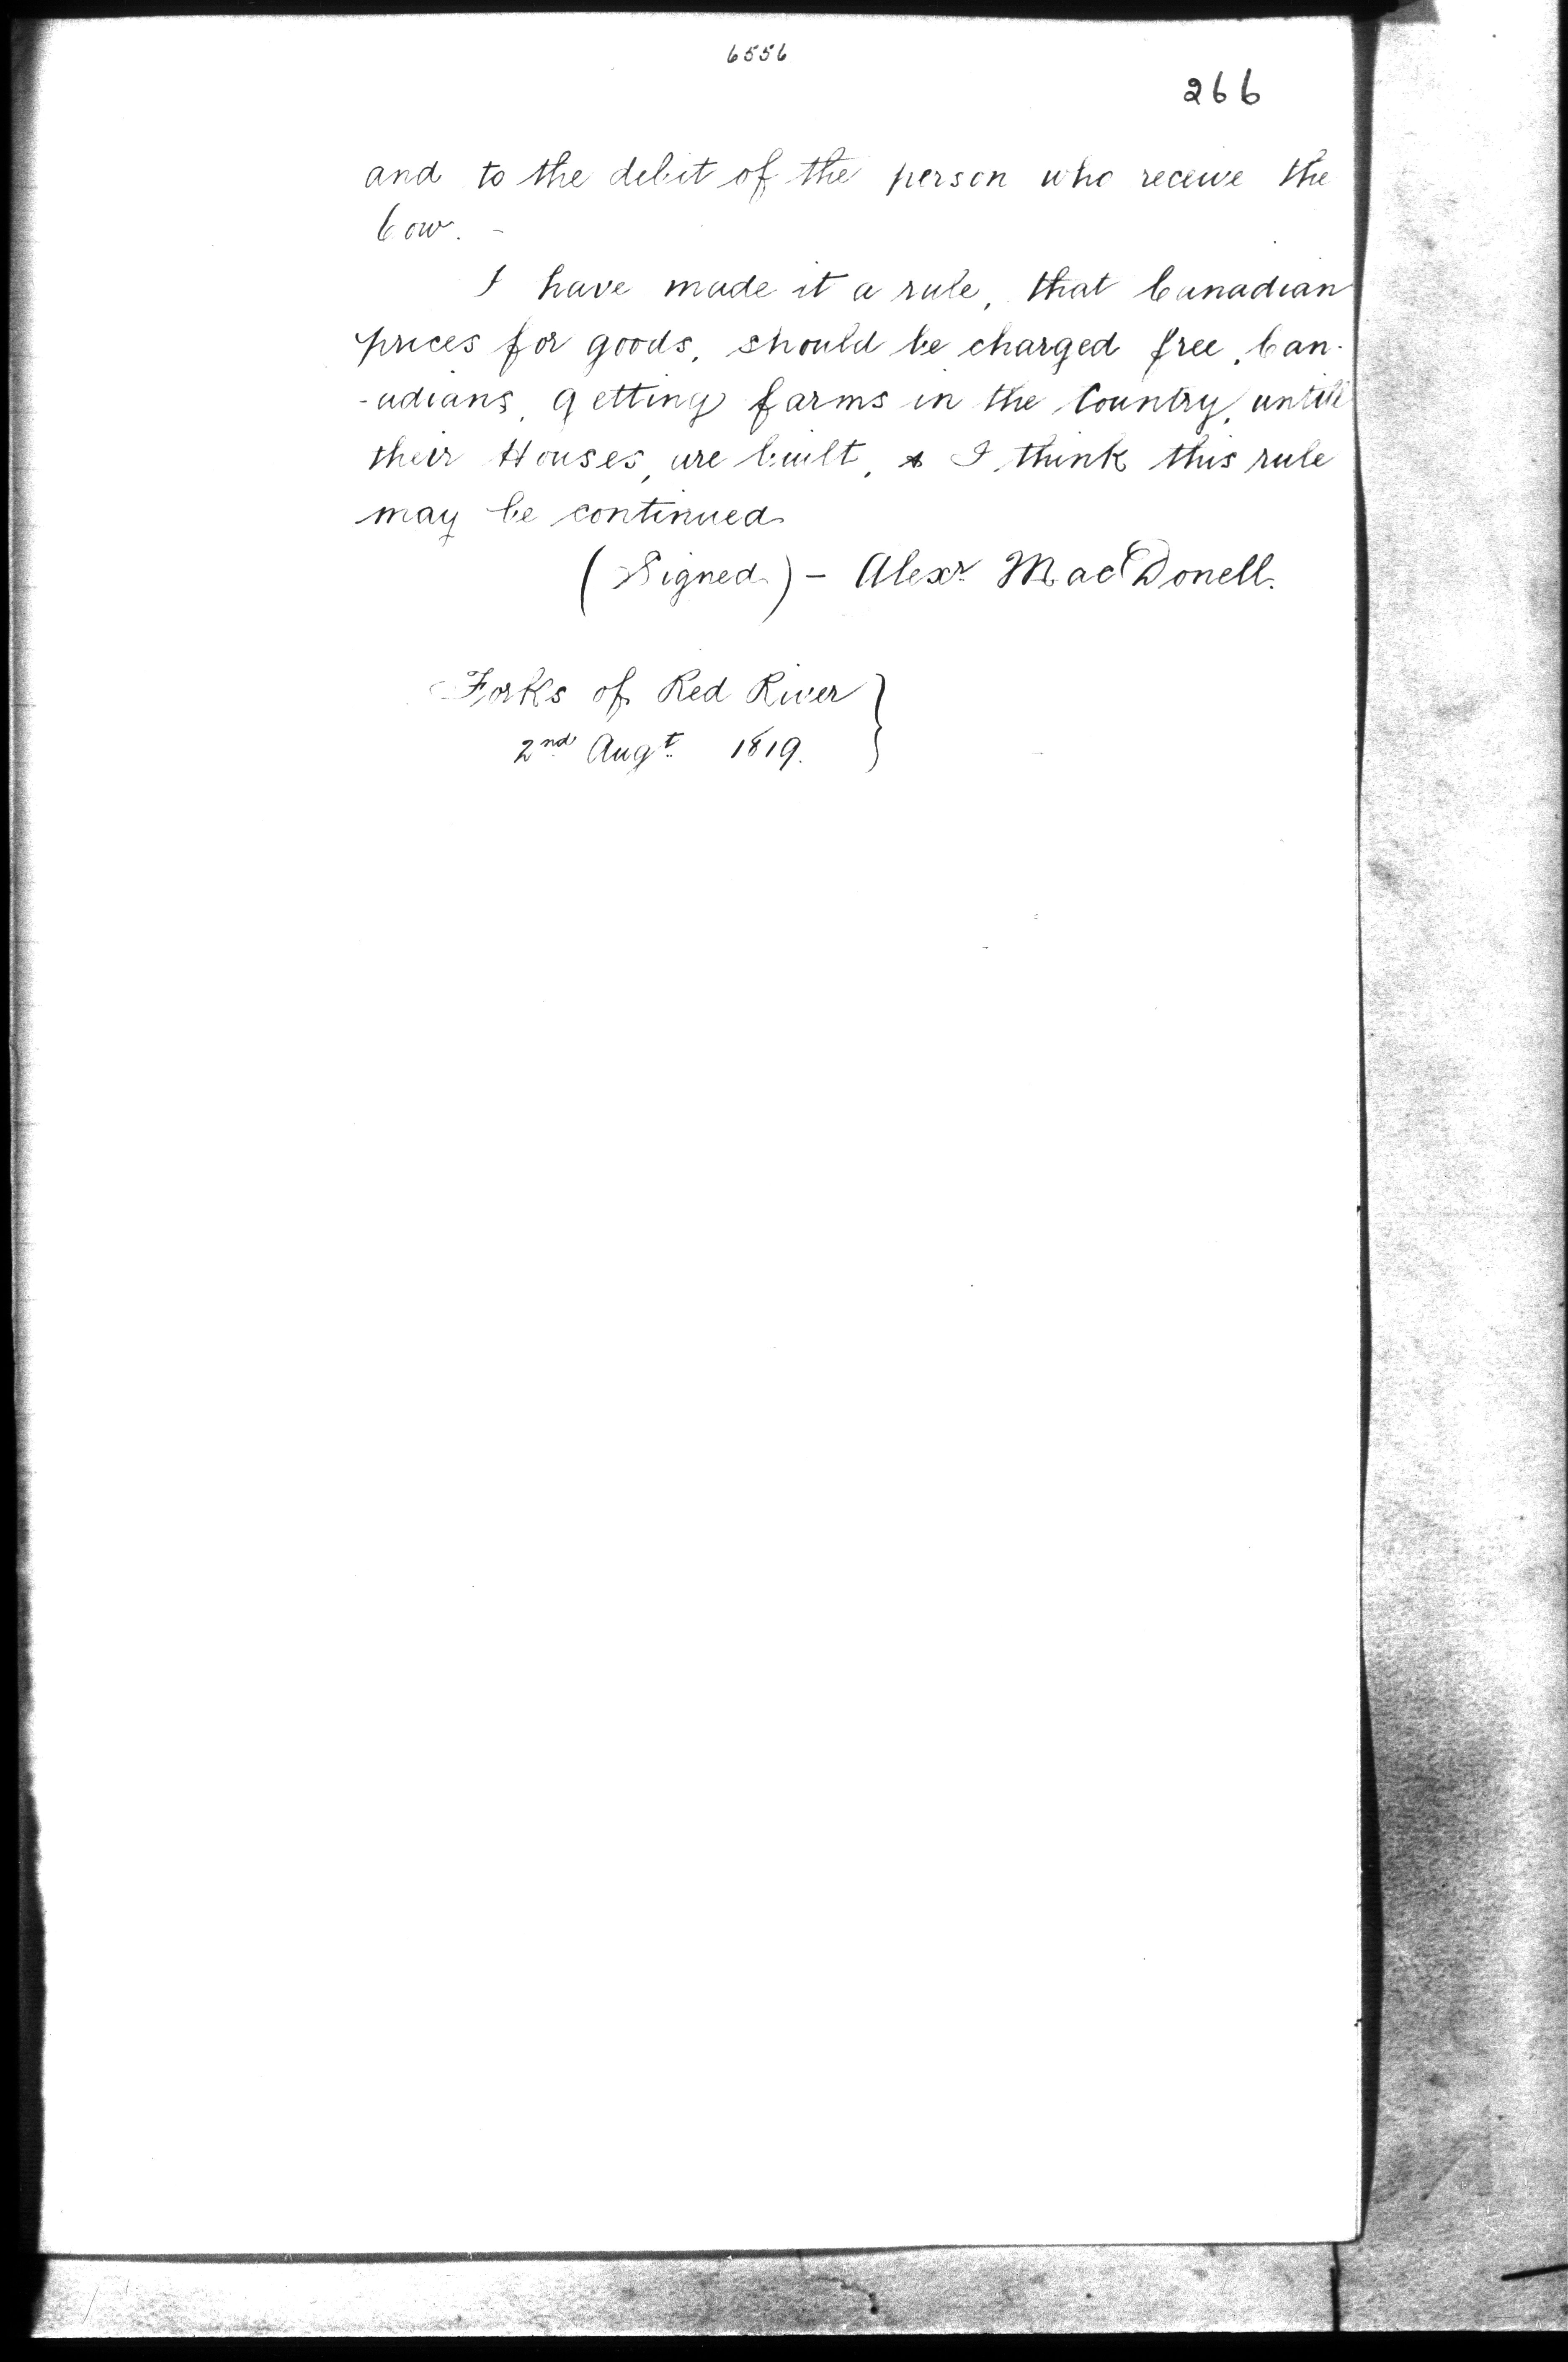 6556
266
and to the debit of the person who receive the
Cow. -
I have made it a rule, that Canadian
prices for goods, should be charged free, Can-
-adians, getting farms in the Country, untill
their Houses, are built, & I think this rule
may be continued
(Signed) - Alexr. MacDonell.
Forks of Red River }
2nd Augt. 1819.